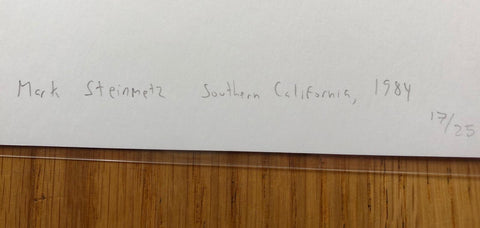 Mark Steinmetz Southern California, 1984
17/25